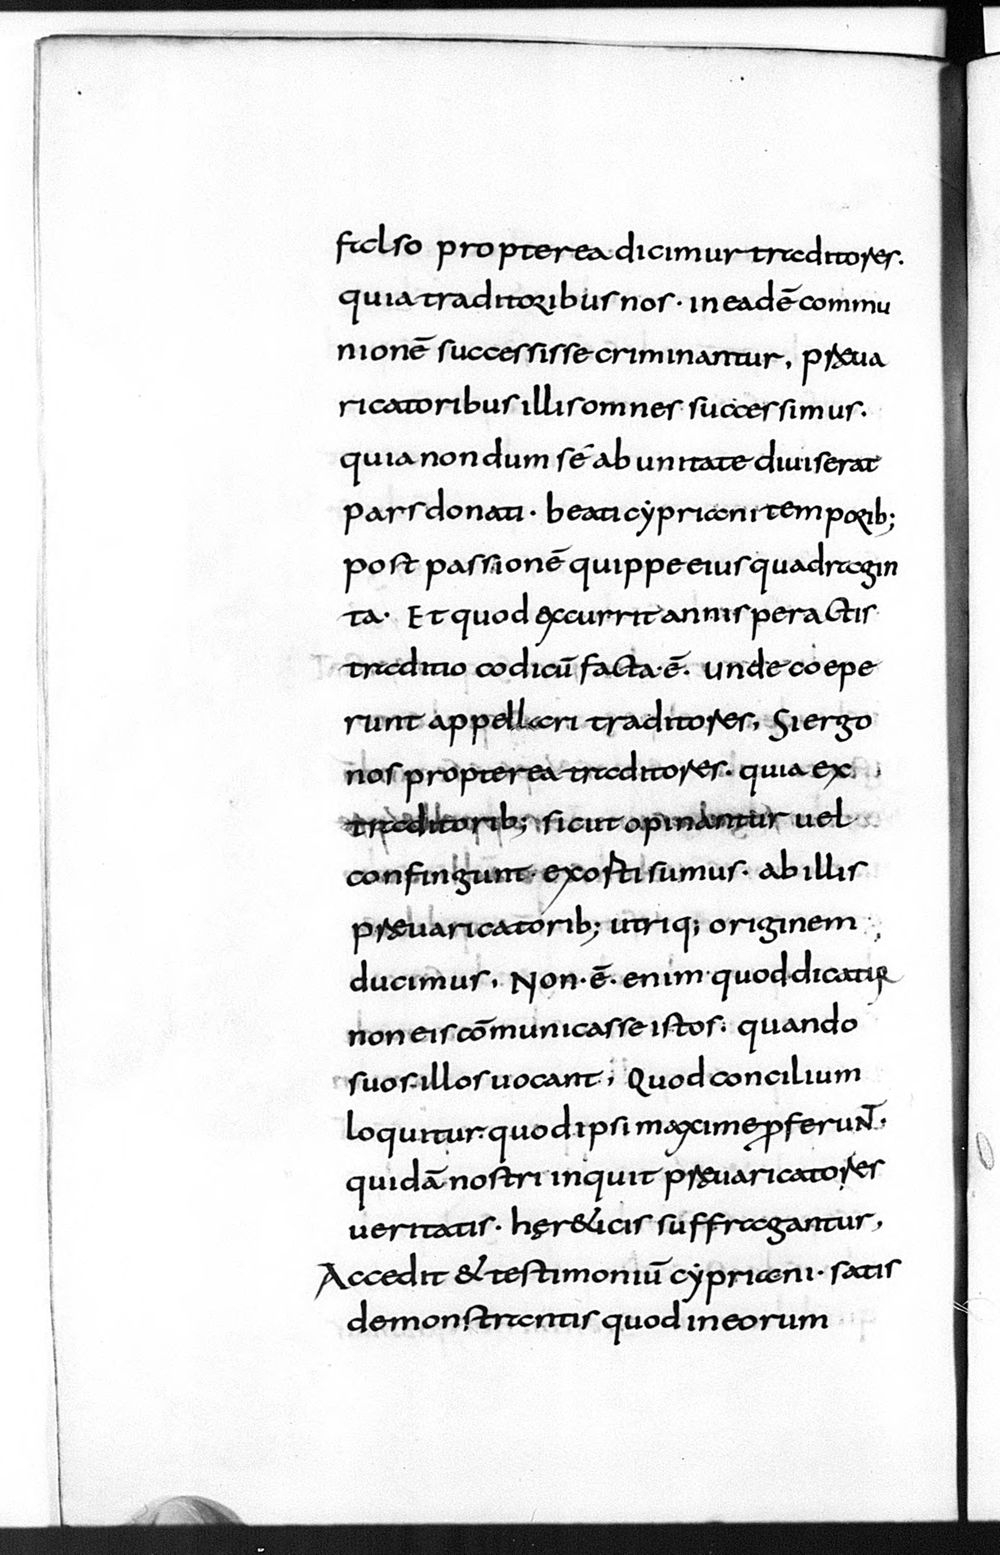 falso propterea dicimur traditores.
quia traditoribus nos · in eadē commu
nionē successisse criminantur, præua
ricatoribus illis omnes successimus.
quia nondum sé ab unitate diuiserat
pars donati · beati cẏpriani temporib;
post passionē quippe eius quadragin
ta · Et quod excurrit annis peractis
traditio codicū facta · ē · unde coepe
runt appellari traditores, Si ergo
nos propterea traditores · quia ex
traditorib; sicut opinantur uel
confingunt · exorti sumus · ab illis
præuaricatorib; utriq; originem
ducimus, Non · ē · enim quod dicatur
non eis cōmunicasse istos · quando
suos illos uocant, Quod concilium
loquitur quod ipsi maxime ꝓferunt̄ ·
quidā nostri inquit præuaricatores
ueritatis · hęr&icis suffragantur,
Accedit & testimoniū cẏpriani · satis
demonstrantis quod in eorum